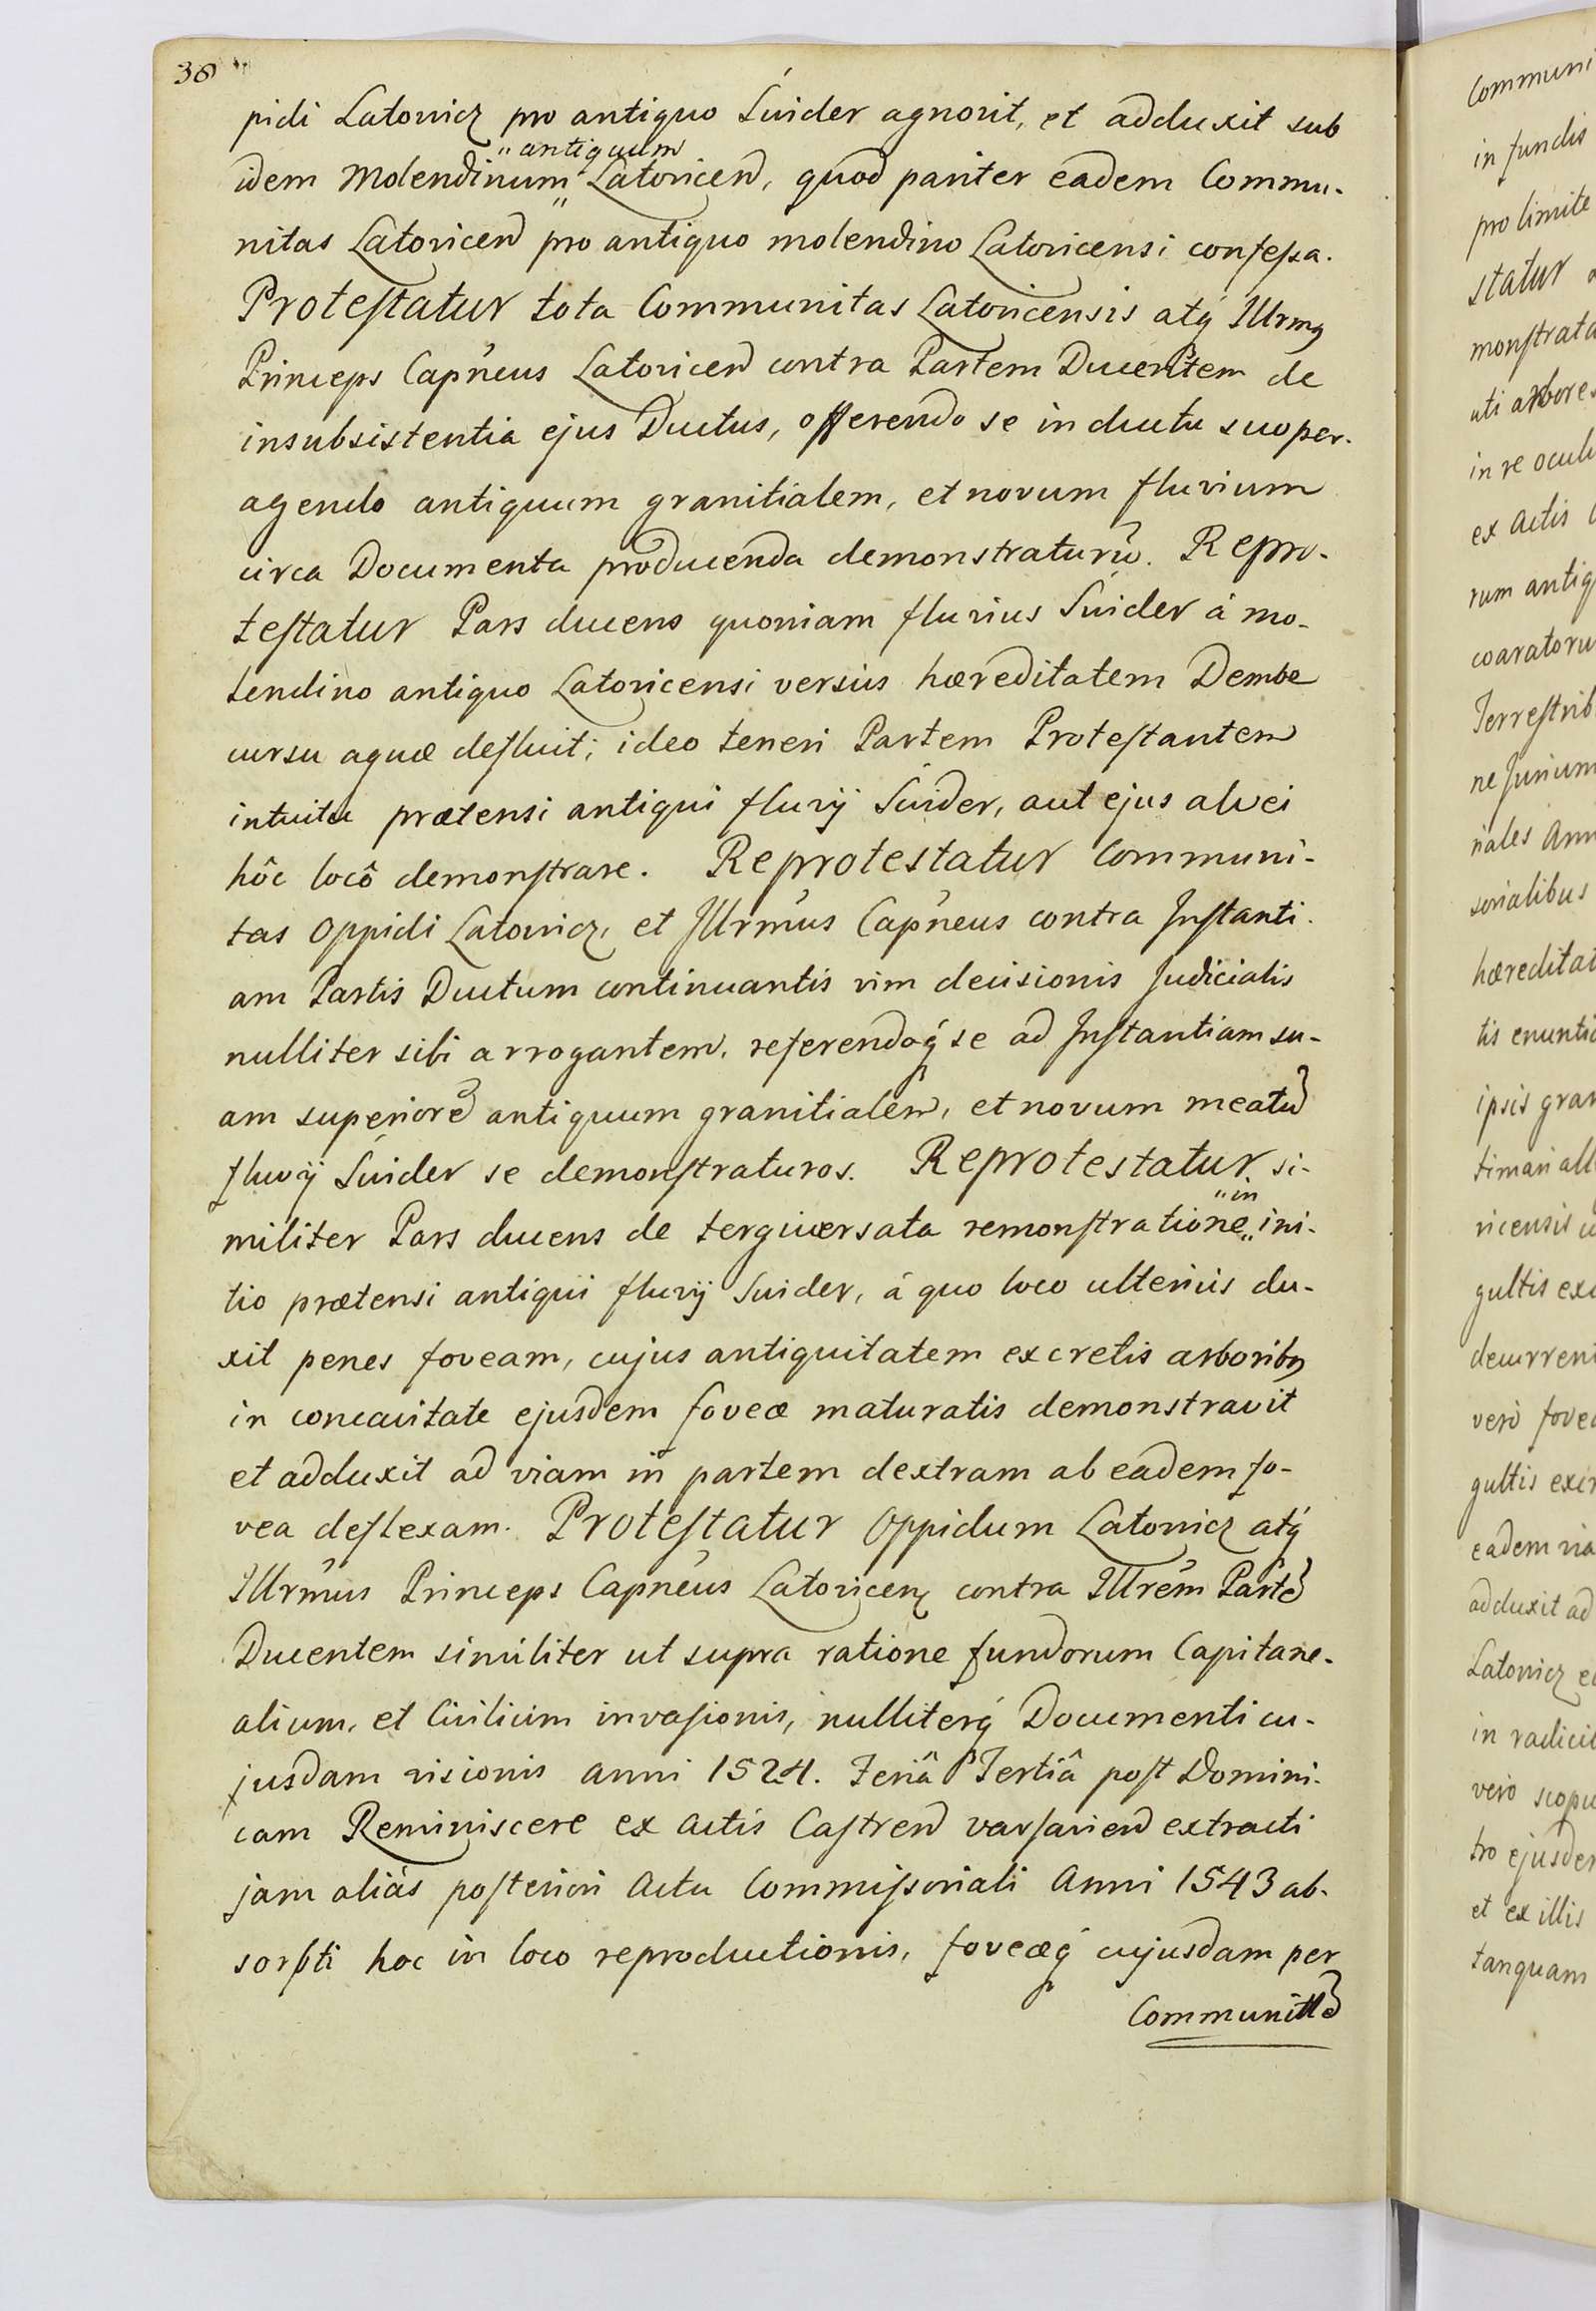 38
pidi Latovicz pro antiquo Suider agnovit, et adduxit sub
"antiquum
idem Molendinum" Latoviceñ, quod pariter eadem Commu-
nitas Latoviceñ pro antiquo molendino Latovicensi confessa.
Protestatur tota Communitas Latovicensis atq́ Illrm9
Princeps Capneus Latoviceñ contra Partem Ducentem de
insubsistentia ejus Ductus, offerendo se in ductu suo per-
agendo antiquum granitialem, et novum fluvium
circa Documenta producenda demonstraturũ. Repro-
testatur Pars ducens quoniam fluvius Suider á mo-
lendino antiquo Latovicensi versùs hæreditatem Dembe
cursu aquæ defluit; ideo teneri Partem Protestantem
intuitu prætensi antiqui fluvij Suider, aut ejus alvei
hôc locô demonstrare. Reprotestatur Communi-
tas Oppidi Latovicz, et Illrm̃us Capñeus contra Instanti-
am Partis Ductum continuantis vim decisionis Judicialis
nulliter sibi arrogantem, referendoq́ se ad Instantiam su-
am superiorẽ antiquum granitialem, et novum meatũ
fluvij Suider se demonstraturos. Reprotestatur si-
"in
militer Pars ducens de tergiversata remonstratione" ini-
tio prætensi antiqui fluvij Suider, á quo loco ulteriùs du-
xit penes foveam, cujus antiquitatem excretis arborib9
in concavitate ejusdem foveæ maturatis demonstravit
et adduxit ad viam in partem dextram ab eadem fo-
vea deflexam. Protestatur Oppidum Latovicz atq́
Illrm̃us Princeps Capñeus Latovicen contra Illrẽm Partẽ
Ducentem similiter ut supra ratione fundorum Capitane-
alium, et Civilium invasionis, nulliterq́ Documenti cu-
jusdam visionis anni 1524. Feriâ Tertiâ post Domini-
cam Reminiscere ex Actis Castreñ varsavieñ extracti
jam aliás posteriori Actu Commissoriali Anni 1543 ab-
sorpti hoc in loco reproductionis, foveæq́ cujusdam per
Communittẽ
Communi
in fundis
pro limite
statur
monstrata
uti arbores
in re ocul
ex actis
rum antiq
coaratoru
Terrestrib
ne Jurium
riales Ann
sorialibus
hæreditat
tis enuntia
ipsis gran
timari all
vicensis
gultis exc
decurren
verò fovea
gultis exc
eadem via
adduxit ad
Latovicz
in radicit
verò scopu
tro ejusdem
et ex illis
tanquam